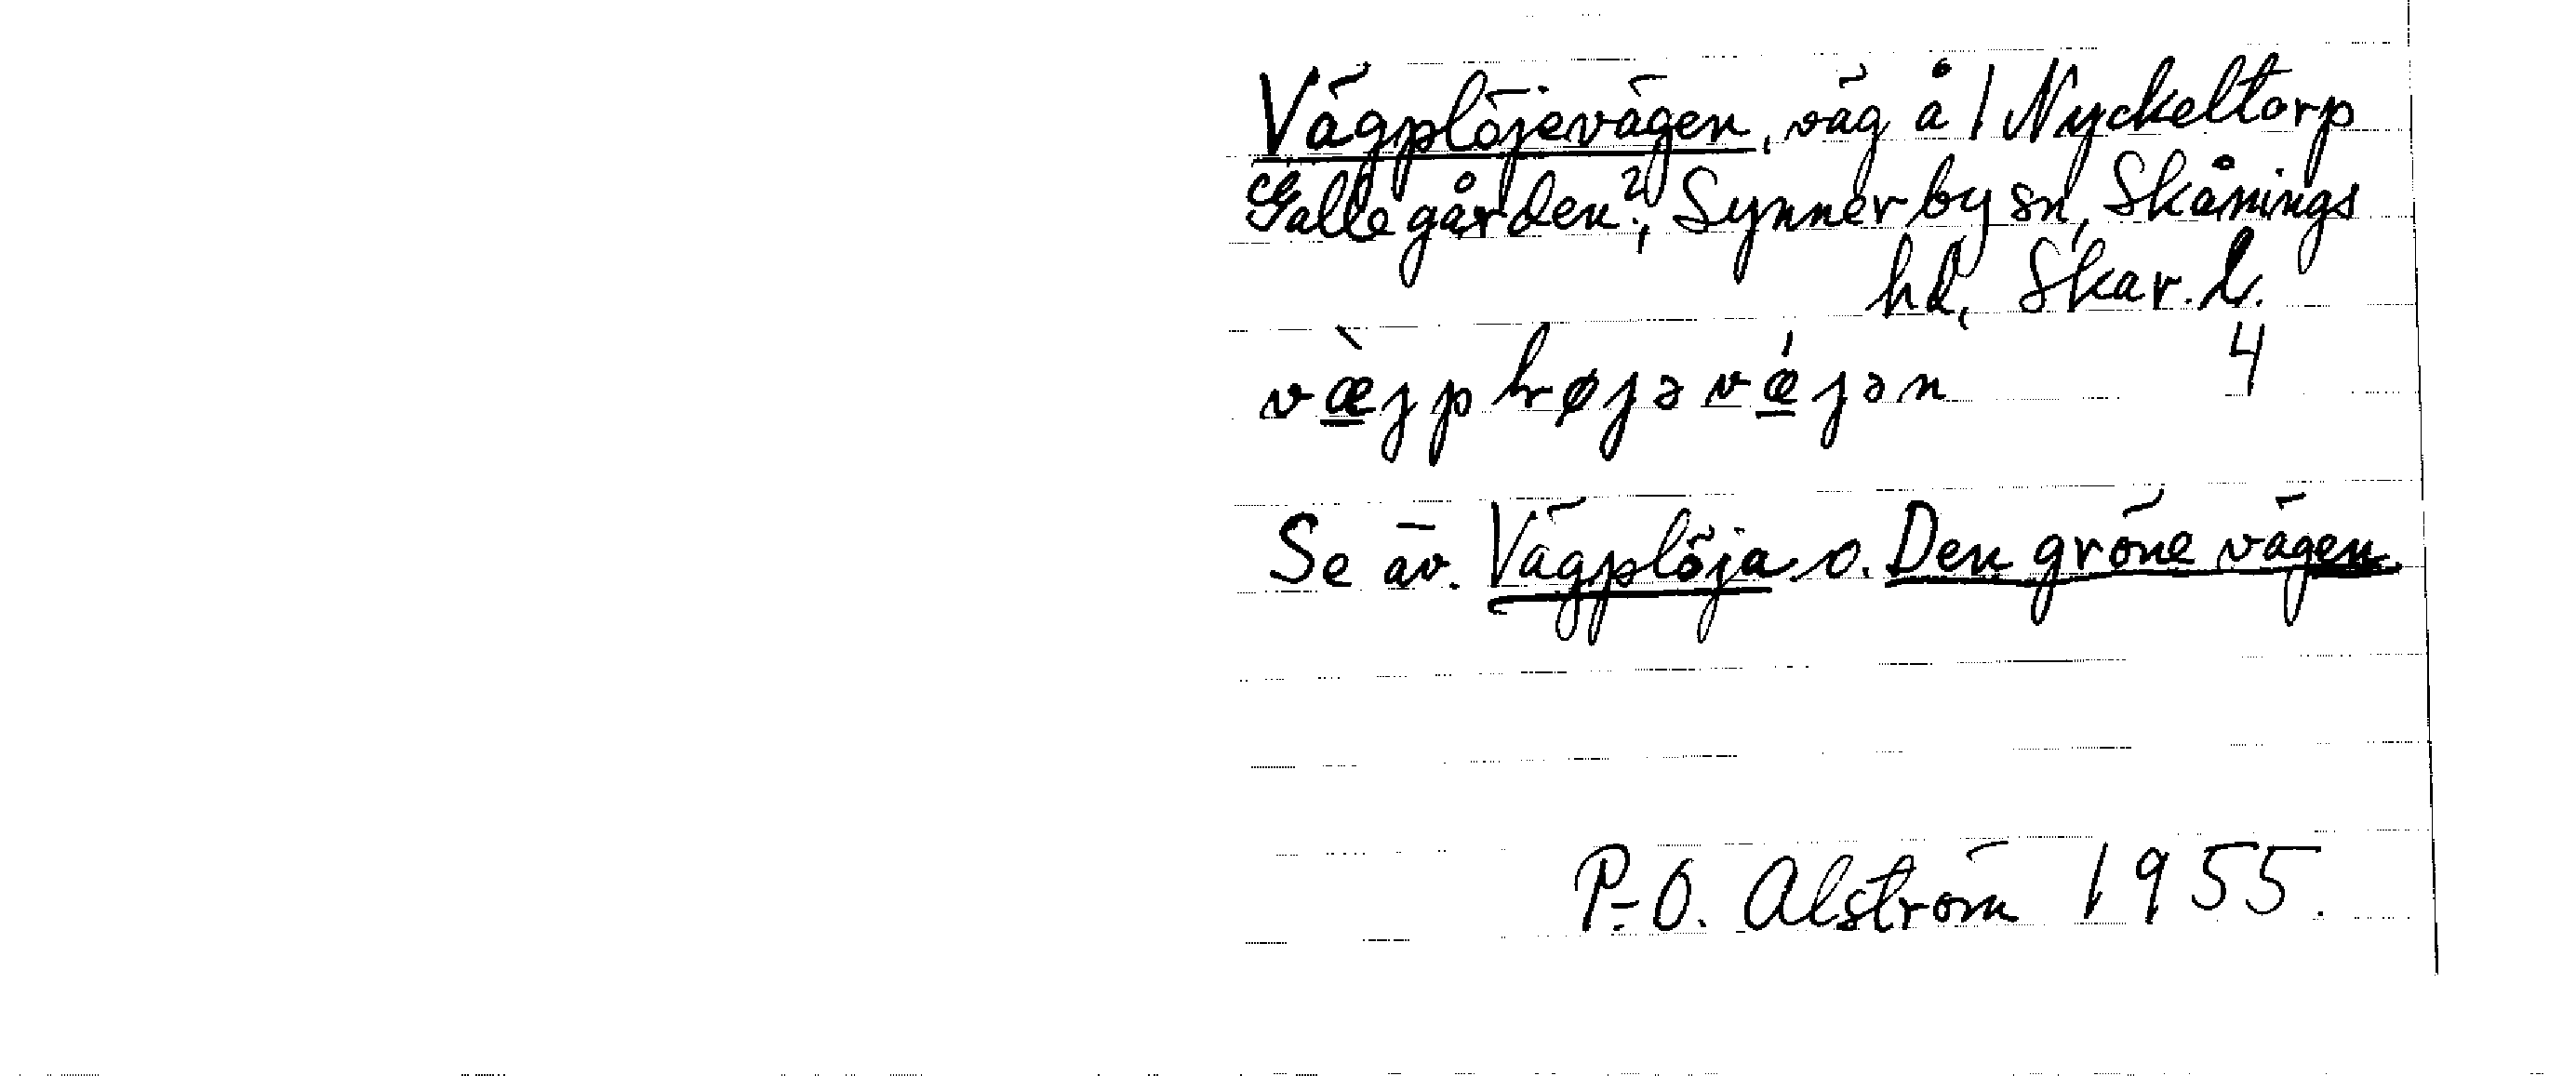 Vägplöjevägen, väg å 1 Nyckeltorp
Gallegården 2;, Synnerby sn, Skånings
hd, Skar. l.
4
væ̀jpløjəvǽjən
Se äv. Vägplöja o. Den gröne vägen
P.-O. Alström 1955.